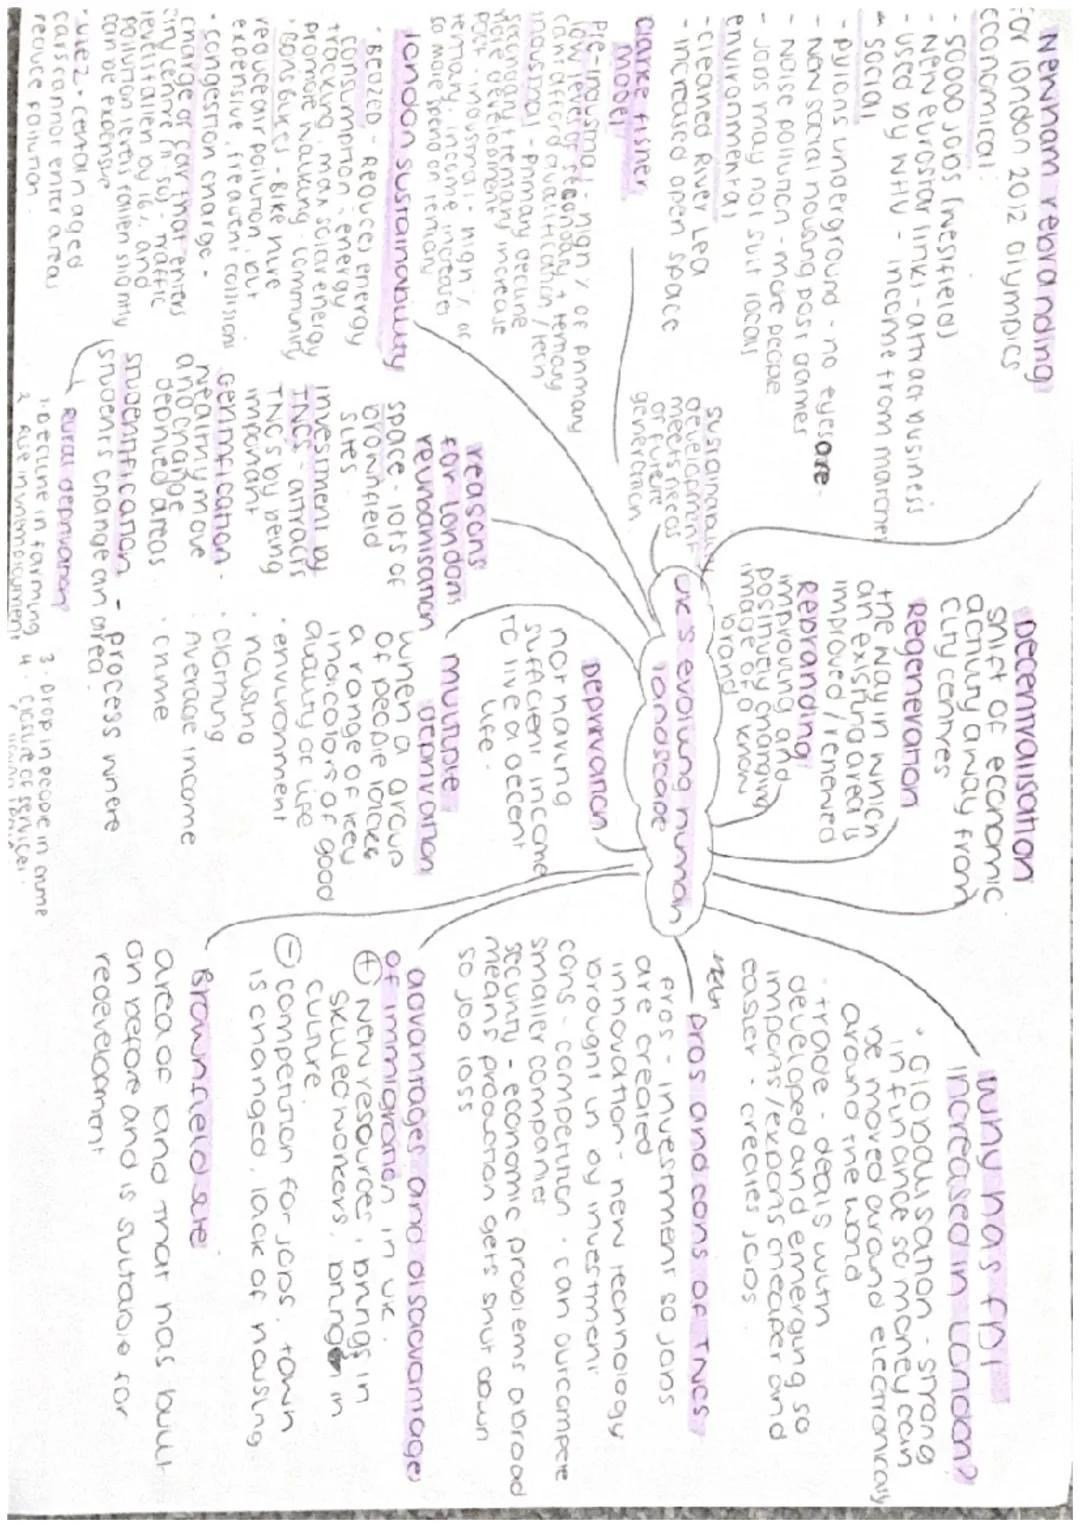 Newham rebranding
for london 2012 olympics
economical:
- 50000 jobs (westfield)
- New eurostar links - attract business
- used by WHU - income from matches
social
- pylons underground - no eyesore
- New social housing post games
- Noise pollution - more people
- Jobs may not suit locals
environmental
- cleaned River Lea
- increased open space
Clarke fisher
model
Pre-industrial - high % of primary
low level of secondary + tertiary
can't afford qualification / tech
industrial - primary decline
secondary + tertiary increase
more development
post-industrial - high % of
tertiary, income increases
so more spend on tertiary
london sustainability
· BEDZED - Reduces energy
consumption : energy
tracking, max solar energy
promote walking, community
· Boris bikes - Bike hire
reduce air pollution, but
expensive, frequent collisions
· congestion charge -
charge of car that enters
city centre (11.50) - traffic
level fallen by 16%, and
pollution levels fallen slightly
can be expensive
· ULEZ - certain aged
cars cannot enter areas
reduce pollution.
sustainability
development
meets needs
of future
generation
reasons
for londons
reurbanisation
space - lots of
brownfield
sites
investment by
TNCS - attracts
TNCs by being
important
Gentrification -
wealthy move
and change
deprived areas
studentification - process where
students change an area.
Rural deprivation
1. Decline in farming
2. Rise in unemployment
3. Drop in people in
4. closure of services
UK's evolving human
landscape
Deprivation
not having
sufficient income
to live a decent
life.
multiple
deprivation
when a group
of people lacks
a range of key
indicators of good
quality of life
· environment
· housing
· clothing
· average income
· crime
Decentralisation
shift of economic
activity away from
city centres
Regeneration
the way in which
an existing area is
improved / renewed
Rebranding
improving and
positively changing
image of a known
brand
Why has FDI
increased in London?
· Globalisation - strong
in finance so money can
be moved around electronically
around the world
· trade - deals with
developed and emerging so
imports/exports cheaper and
easier - creates jobs
pros and cons of TNCs
pros - investment so jobs
are created
innovation - new technology
brought in by investment
cons - competition - can outcompete
smaller companies
security - economic problems abroad
means production gets shut down
so job loss
advantages and disadvantages
of immigration in UK.
+ New resources, brings in
skilled workers, bring in
culture.
- competition for jobs, town
is changed, lack of housing
Brownfield site
area of land that has built
on before and is suitable for
redevelopment